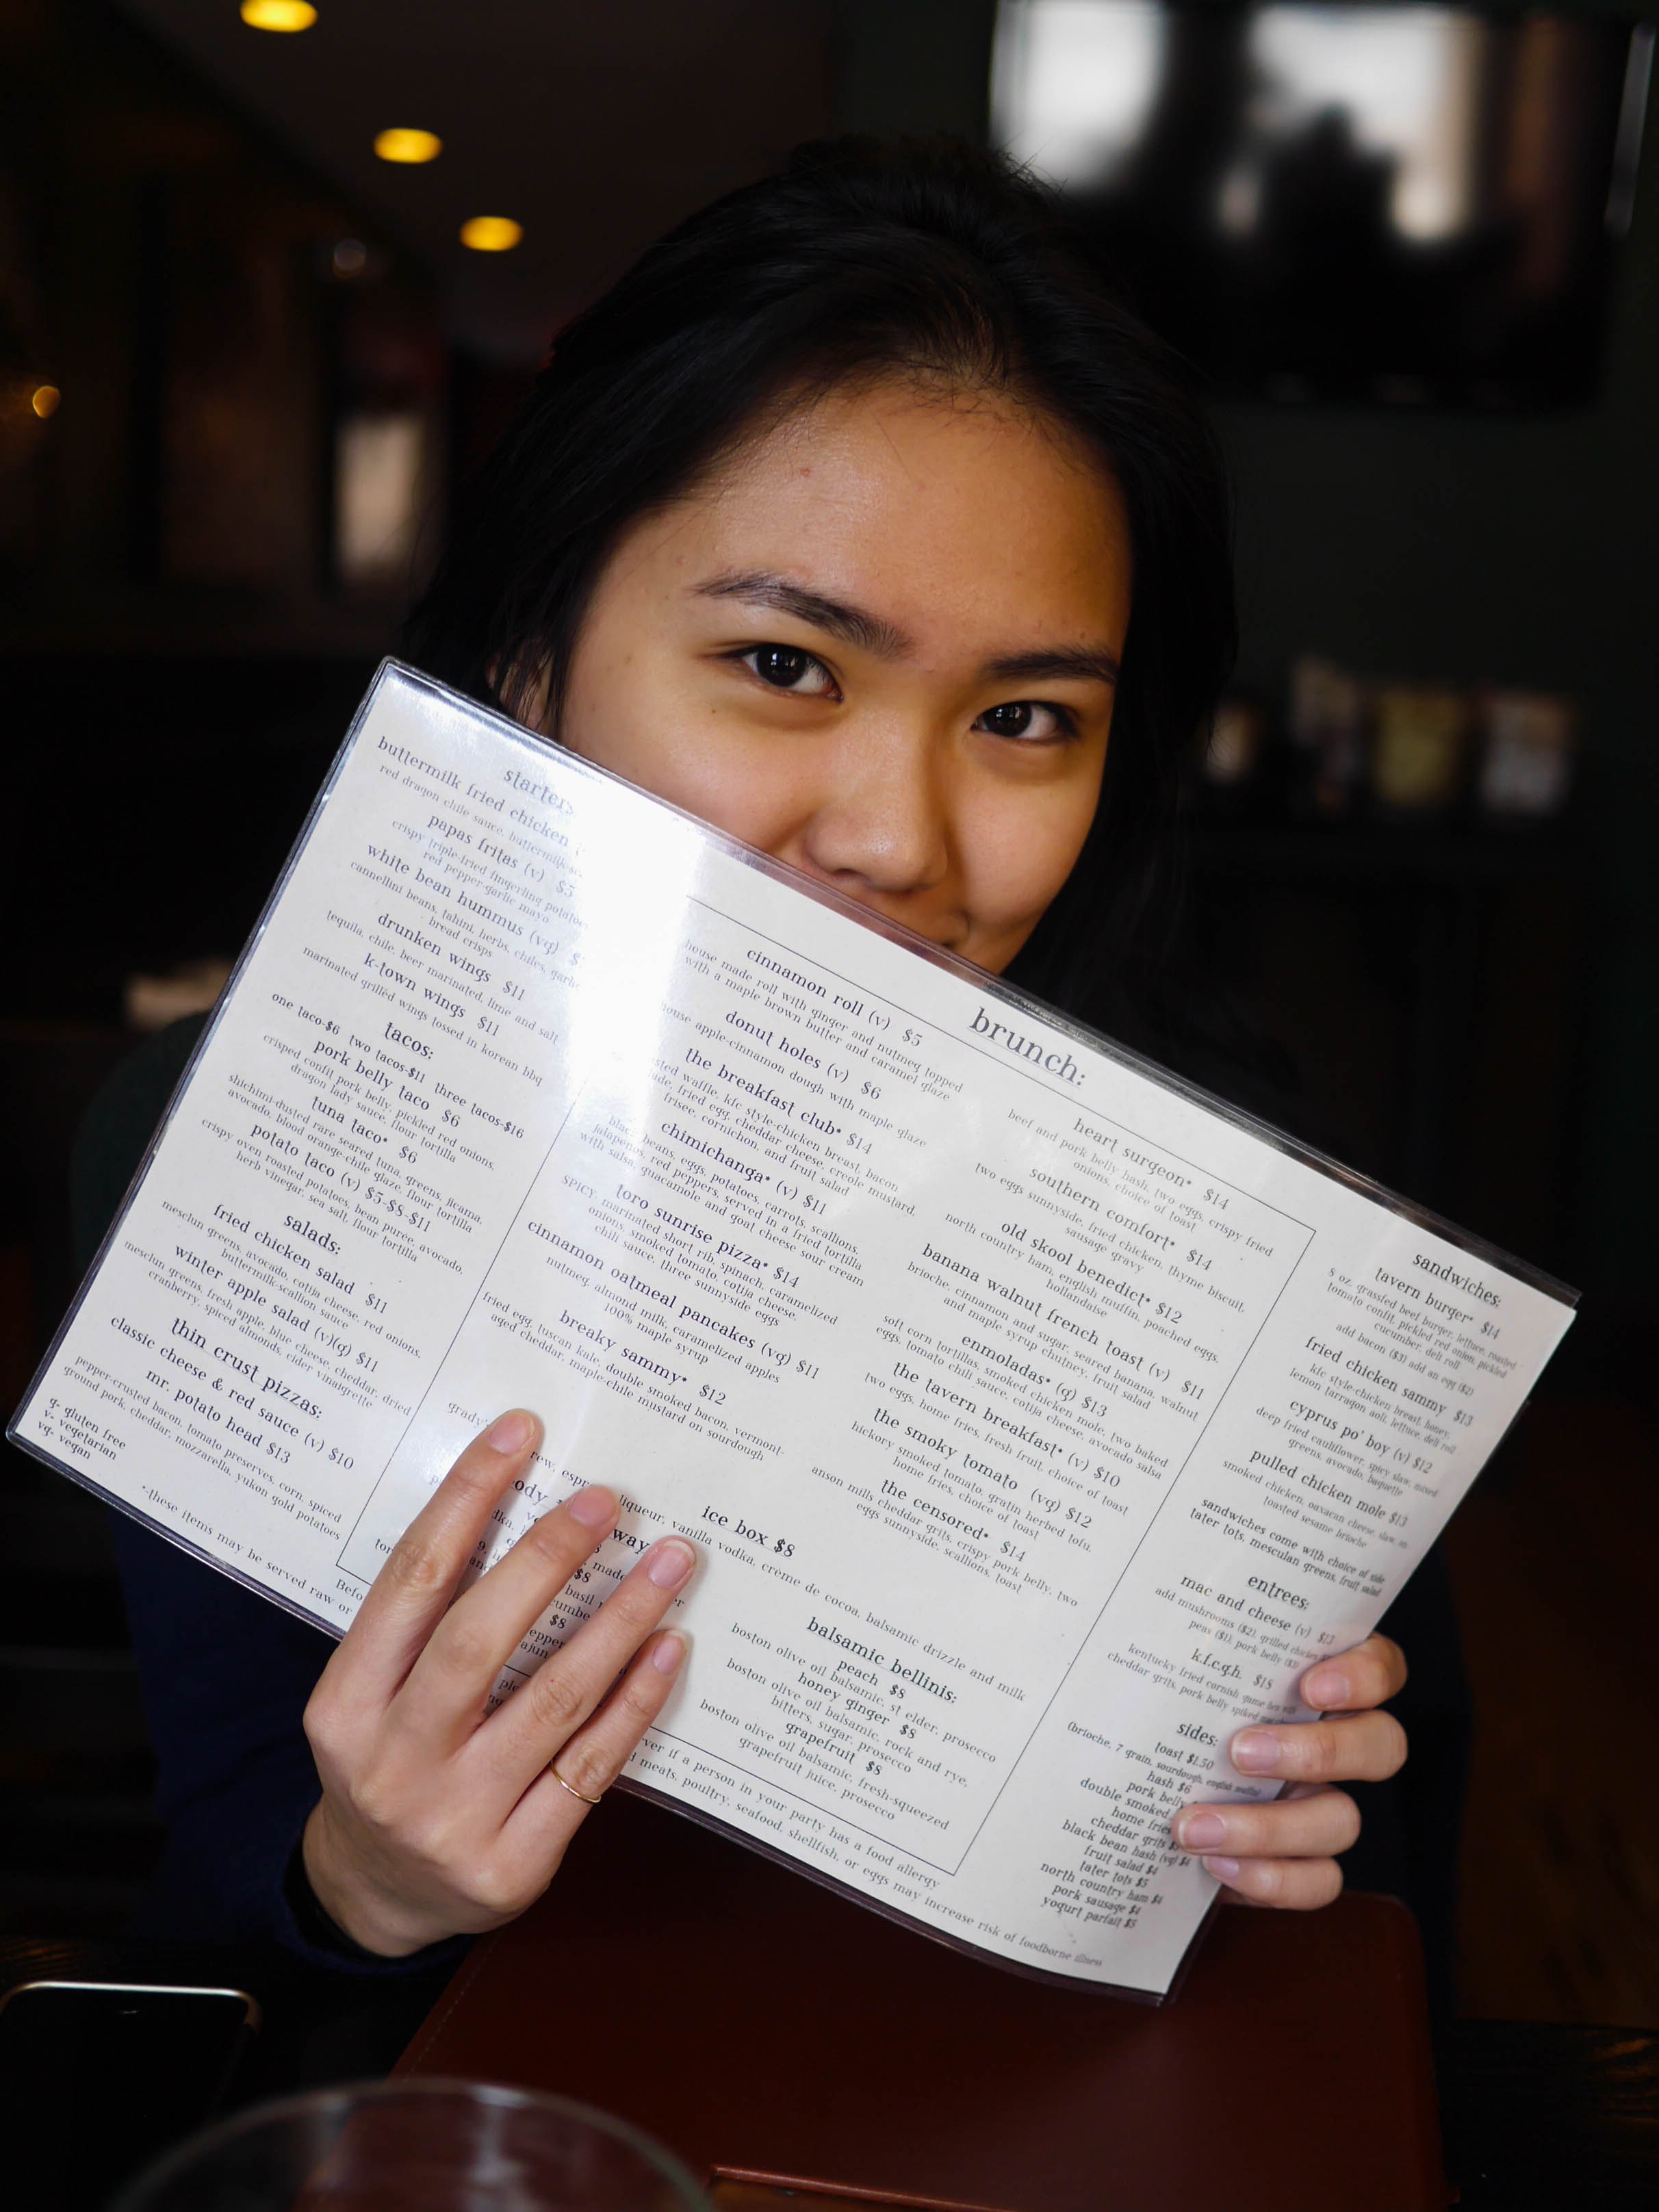 starters
buttermilk fried chicken
red dragon chile sauce, buttermilk
papas fritas (v) $5
crispy triple-fried fingerling potatoes
red pepper-garlic mayo
white bean hummus (vg)
cannellini beans, tahini, herbs, chiles, garlic
bread crisps
drunken wings $11
tequila, chile, beer marinated, lime and salt
k-town wings $11
marinated grilled wings tossed in korean bbq
tacos:
one taco-$6 two tacos-$11 three tacos-$16
pork belly taco $6
crisped confit pork belly, pickled red onions,
dragon lady sauce, flour tortilla
tuna taco* $6
shichimi-dusted rare seared tuna, greens, jicama,
avocado, blood orange-chile glaze, flour tortilla
potato taco (v) $5-$8-$11
crispy oven roasted potatoes, bean puree, avocado,
herb vinegar, sea salt, flour tortilla
salads:
fried chicken salad $11
mesclun greens, avocado, cotija cheese, red onions,
buttermilk-scallion sauce
winter apple salad (v)(g) $11
mesclun greens, fresh apple, blue cheese, cheddar, dried
cranberry, spiced almonds, cider vinaigrette
thin crust pizzas:
classic cheese & red sauce (v) $10
mr. potato head $13
pepper-crusted bacon, tomato preserves, corn, spiced
ground pork, cheddar, mozzarella, yukon gold potatoes
g- gluten free
v- vegetarian
vg- vegan
brunch:
cinnamon roll (v) $5
house made roll with ginger and nutmeg topped
with a maple brown butter and caramel glaze
donut holes (v) $6
house apple-cinnamon dough with maple glaze
the breakfast club* $14
waffle, kfc style-chicken breast, bacon
fried egg, cheddar cheese, creole mustard,
frisee, cornichon, and fruit salad
chimichanga* (v) $11
black beans, eggs, potatoes, carrots, scallions,
jalapenos, red peppers, served in a fried tortilla
with salsa, guacamole and goat cheese sour cream
toro sunrise pizza* $14
spicy, marinated short rib, spinach, caramelized
onions, smoked tomato, cotija cheese,
chili sauce, three sunnyside eggs
cinnamon oatmeal pancakes (vg) $11
nutmeg, almond milk, caramelized apples
100% maple syrup
breaky sammy* $12
fried egg, tuscan kale, double smoked bacon, vermont-
aged cheddar, maple-chile mustard on sourdough
heart surgeon* $14
beef and pork belly hash, two eggs, crispy fried
onions, choice of toast
southern comfort* $14
two eggs sunnyside, fried chicken, thyme biscuit,
sausage gravy
old skool benedict* $12
north country ham, english muffin, poached eggs,
hollandaise
banana walnut french toast (v) $11
brioche, cinnamon and sugar, seared banana, walnut
and maple syrup chutney, fruit salad
enmoladas* (g) $13
soft corn tortillas, smoked chicken mole, two baked
eggs, tomato chili sauce, cotija cheese, avocado salsa
the tavern breakfast* (v) $10
two eggs, home fries, fresh fruit, choice of toast
the smoky tomato (vg) $12
hickory smoked tomato, gratin herbed tofu,
home fries, choice of toast
the censored* $14
anson mills cheddar grits, crispy pork belly, two
eggs sunnyside, scallions, toast
ice box $8
liqueur, vanilla vodka, crème de cocoa, balsamic drizzle and milk
way
made
$8
basil
$8
balsamic bellinis:
peach $8
boston olive oil balsamic, st elder, prosecco
honey ginger $8
boston olive oil balsamic, rock and rye,
bitters, sugar, prosecco
grapefruit $8
boston olive oil balsamic, fresh-squeezed
grapefruit juice, prosecco
sandwiches:
tavern burger* $14
8 oz. grassfed beef burger, lettuce, roasted
tomato confit, pickled red onion, pickled
cucumber, deli roll
add bacon ($3) add an egg ($2)
fried chicken sammy $13
kfc style-chicken breast, honey,
lemon tarragon aoli, lettuce, deli roll
cyprus po' boy (v) $12
deep fried cauliflower, spicy slaw, mixed
greens, avocado, baguette
pulled chicken mole $13
smoked chicken, oaxacan cheese, slaw, on
toasted sesame brioche
sandwiches come with choice of side
tater tots, mesculan greens, fruit salad
entrees:
mac and cheese (v) $13
add mushrooms ($2), grilled chicken
peas ($1), pork belly ($3)
k.f.c.g.h. $18
kentucky fried cornish game hen with
cheddar grits, pork belly spiked
sides:
toast $1.50
(brioche, 7 grain, sourdough, english muffin)
hash $6
pork belly
double smoked
home fries
cheddar grits
black bean hash (vg) $4
fruit salad $4
tater tots $5
north country ham $4
pork sausage $4
yogurt parfait $5
if a person in your party has a food allergy
*-these items may be served raw or meats, poultry, seafood, shellfish, or eggs may increase risk of foodborne illness